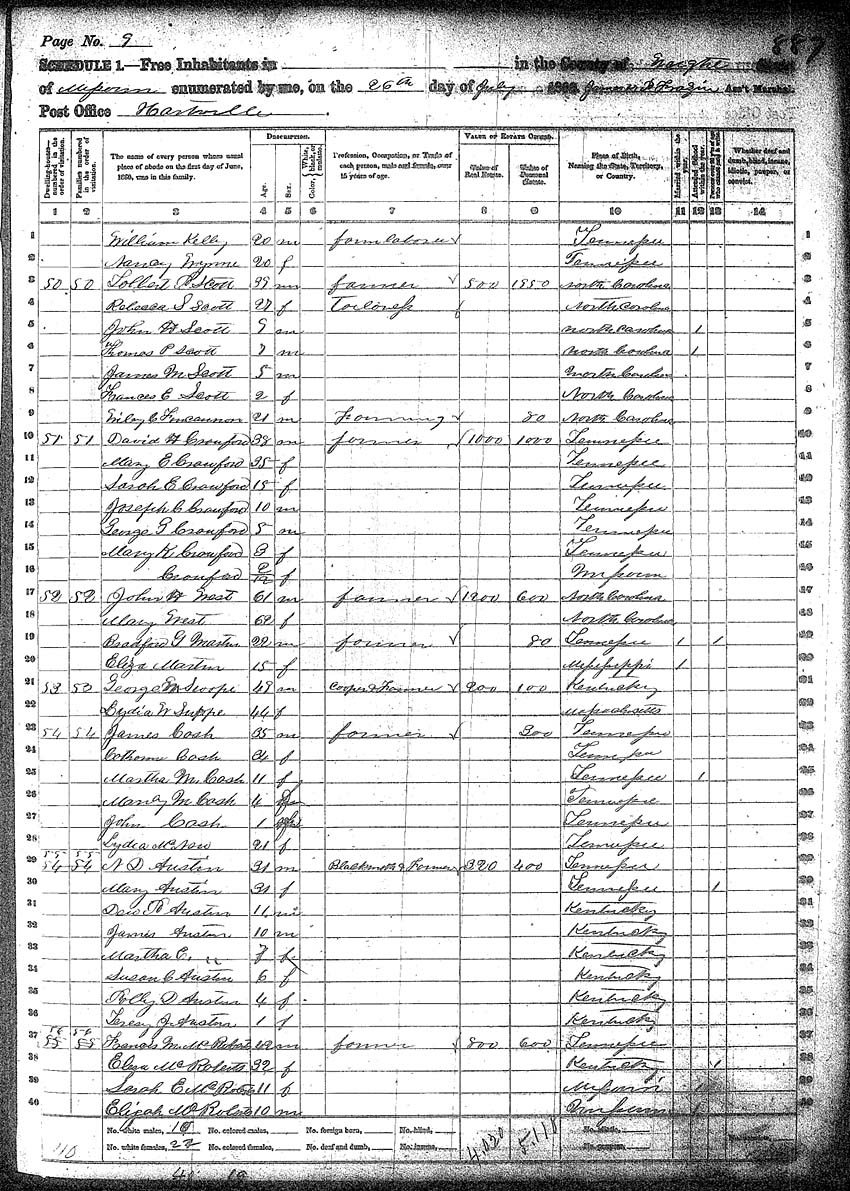 Page No. 9
887
SCHEDULE 1.—Free Inhabitants in in the County of Wright State
of Missouri enumerated by me, on the 26th day of July 1860. Ass't Marshal.
Post Office Hartville
Dwelling-houses numbered in the order of visitation.
Families numbered in the order of visitation.
The name of every person whose usual place of abode on the first day of June, 1860, was in this family.
DESCRIPTION.
Age.
Sex.
Color, White, black, or mulatto.
Profession, Occupation, or Trade of each person, male and female, over 15 years of age.
VALUE OF ESTATE OWNED.
Value of Real Estate.
Value of Personal Estate.
Place of Birth, Naming the State, Territory, or Country.
Married within the year.
Attended School within the year.
Whether deaf and dumb, blind, insane, idiotic, pauper, or convict.
1 2 3 4 5 6 7 8 9 10 11 12 13 14
1 William Kelly 20 m farm laborer Tennessee 1
2 Nancy 20 f Tennessee 2
3 50 50 Tolbert P Scott 39 m farmer 800 North Carolina 3
4 Rebecca S Scott 27 f North Carolina 4
5 John W Scott 9 m North Carolina 1 5
6 Thomas P Scott 7 m North Carolina 1 6
7 James M Scott 5 m North Carolina 7
8 Frances E Scott 2 f North Carolina 8
9 Wiley C Fincannon 21 m Farming 80 North Carolina 9
10 51 51 David H Crawford 38 m farmer 1000 1000 Tennessee 10
11 Mary E Crawford 35 f Tennessee 11
12 Sarah E Crawford 15 f Tennessee 12
13 Joseph C Crawford 10 m Tennessee 13
14 George G Crawford 5 m Tennessee 14
15 Mary K Crawford 3 f Tennessee 15
16 Crawford 2/12 f Missouri 16
17 52 52 John W West 61 m farmer 1200 600 North Carolina 17
18 Mary West 62 f North Carolina 18
19 Bradford G Martin 22 m farmer 80 Tennessee 1 1 19
20 Eliza Martin 15 f Mississippi 1 20
21 53 53 George M 48 m Cooper & Farmer 200 100 Kentucky 21
22 Lydia W 44 f Massachusetts 22
23 54 54 James Cash 35 m farmer 300 Tennessee 23
24 Cash 34 f Tennessee 24
25 Martha M. Cash 11 f Tennessee 1 25
26 M Cash 4 Tennessee 26
27 John Cash 1 Tennessee 27
28 Lydia 21 f Tennessee 28
55 55
29 54 54 N D Austin 31 m Blacksmith & Farmer 320 400 Tennessee 29
30 Mary Austin 31 f Tennessee 1 30
31 Austin 11 m Kentucky 31
32 James Austin 10 m Kentucky 32
33 Martha E. " 7 f Kentucky 33
34 Susan C Austin 6 f Kentucky 34
35 Polly D Austin 4 f Kentucky 35
36 Austin 1 f Kentucky 36
56 56
37 55 55 Francis M McRoberts 42 m farmer 800 600 Tennessee 37
38 Eliza McRoberts 32 f Kentucky 1 38
39 Sarah E McRoberts 11 f Missouri 1 39
40 Elijah McRoberts 10 m Missouri 1 40
No. white males, No. colored males, No. foreign born, No. blind,
No. white females, No. colored females, No. deaf and dumb, No. insane,
40
4,020 5,110